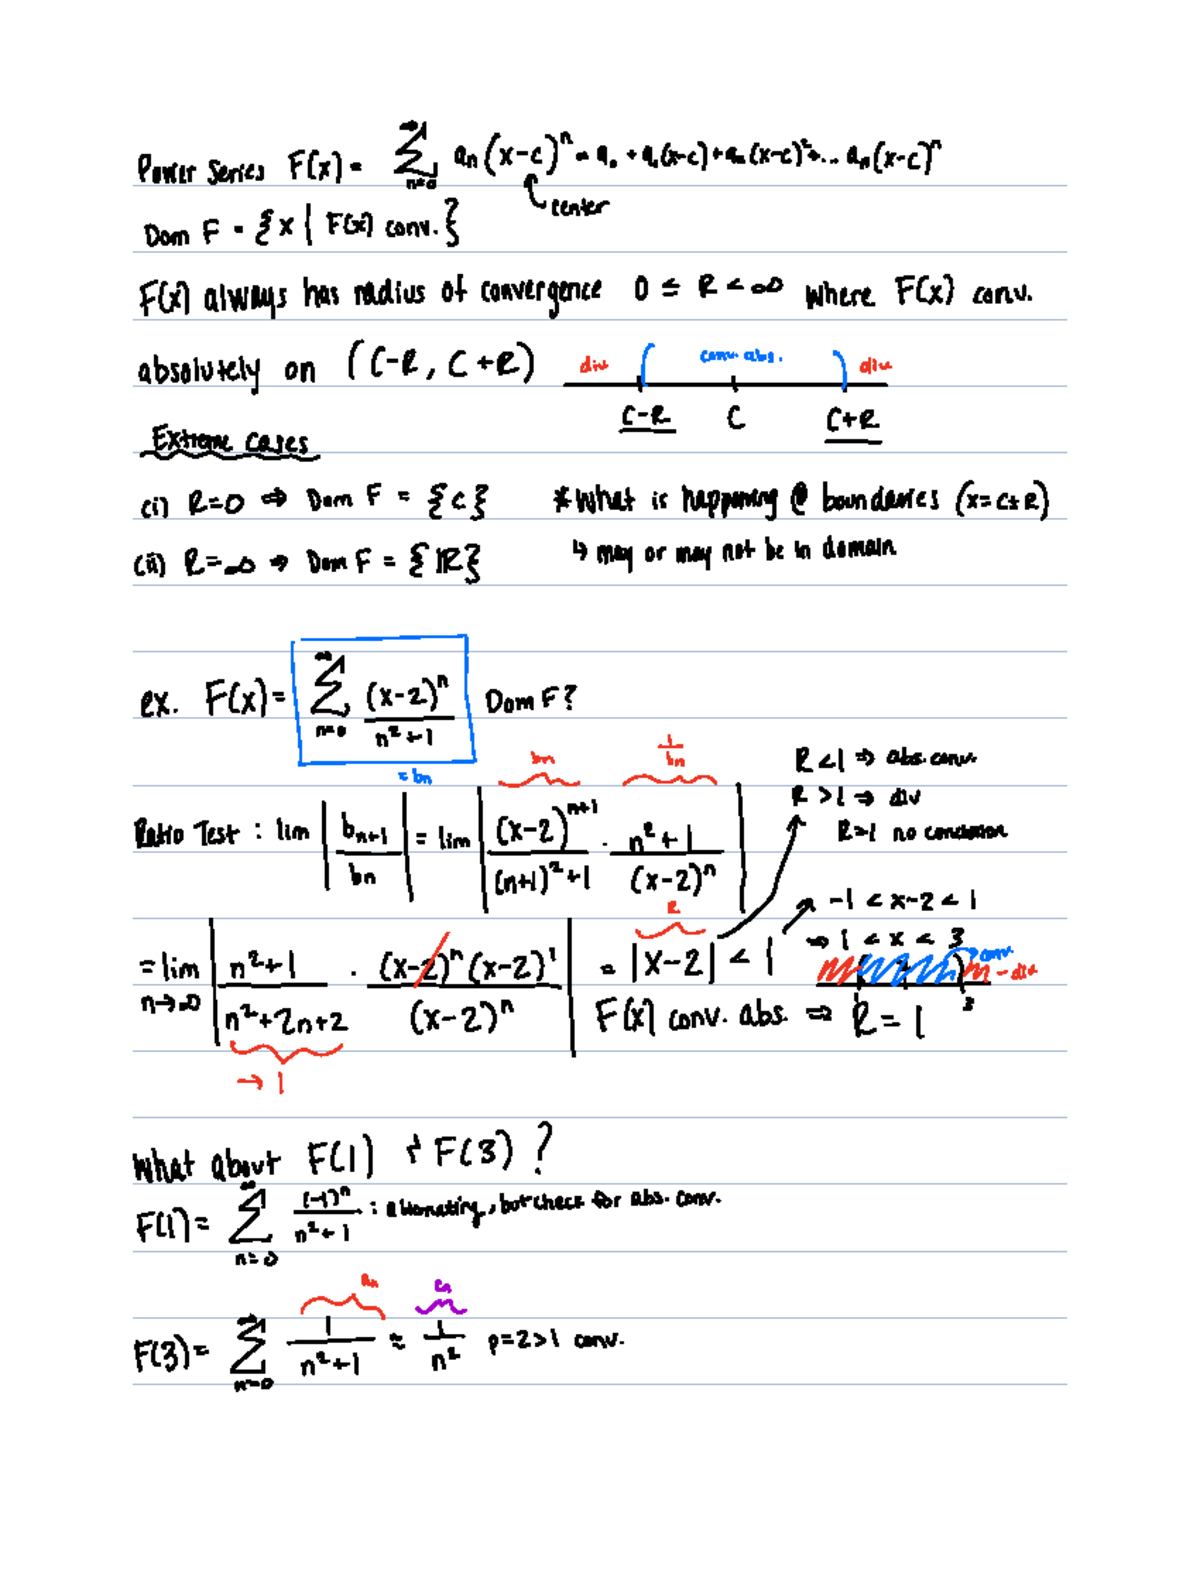 Power Series F(x) = ∞ Σ n=0 aₙ(x-c)ⁿ = a₀ + a₁(x-c) + a₂(x-c)² + ... aₙ(x-c)ⁿ
center
Dom F = {x | F(x) conv.}
F(x) always has radius of convergence 0 ≤ R < ∞ where F(x) conv.
absolutely on (C-R, C+R) div conv. abs. div
C-R C C+R
Extreme cases
(i) R=0 ⇒ Dom F = {c} *What is happening @ boundaries (x = c±R)
(ii) R=∞ ⇒ Dom F = {ℝ} ↳ may or may not be in domain
ex. F(x) = ∞ Σ n=0 (x-2)ⁿ / n²+1 Dom F?
= bn bn 1/bn
R<1 ⇒ abs. conv.
R>1 ⇒ div
R=1 no conclusion
Ratio Test : lim | bn+1 / bn | = lim | (x-2)ⁿ⁺¹ / (n+1)²+1 · n²+1 / (x-2)ⁿ |
R
-1 < x-2 < 1
⇒ 1 < x < 3
= lim n→∞ | n²+1 / n²+2n+2 · (x-2)ⁿ(x-2)¹ / (x-2)ⁿ | = |x-2| < 1
conv. - div
3
F(x) conv. abs. ⇒ R = 1
→ 1
What about F(1) + F(3) ?
F(1) = ∞ Σ n=0 (-1)ⁿ / n²+1 : alternating, but check for abs. conv.
an cn
F(3) = ∞ Σ n=0 1 / n²+1 ≈ 1 / n² p=2>1 conv.